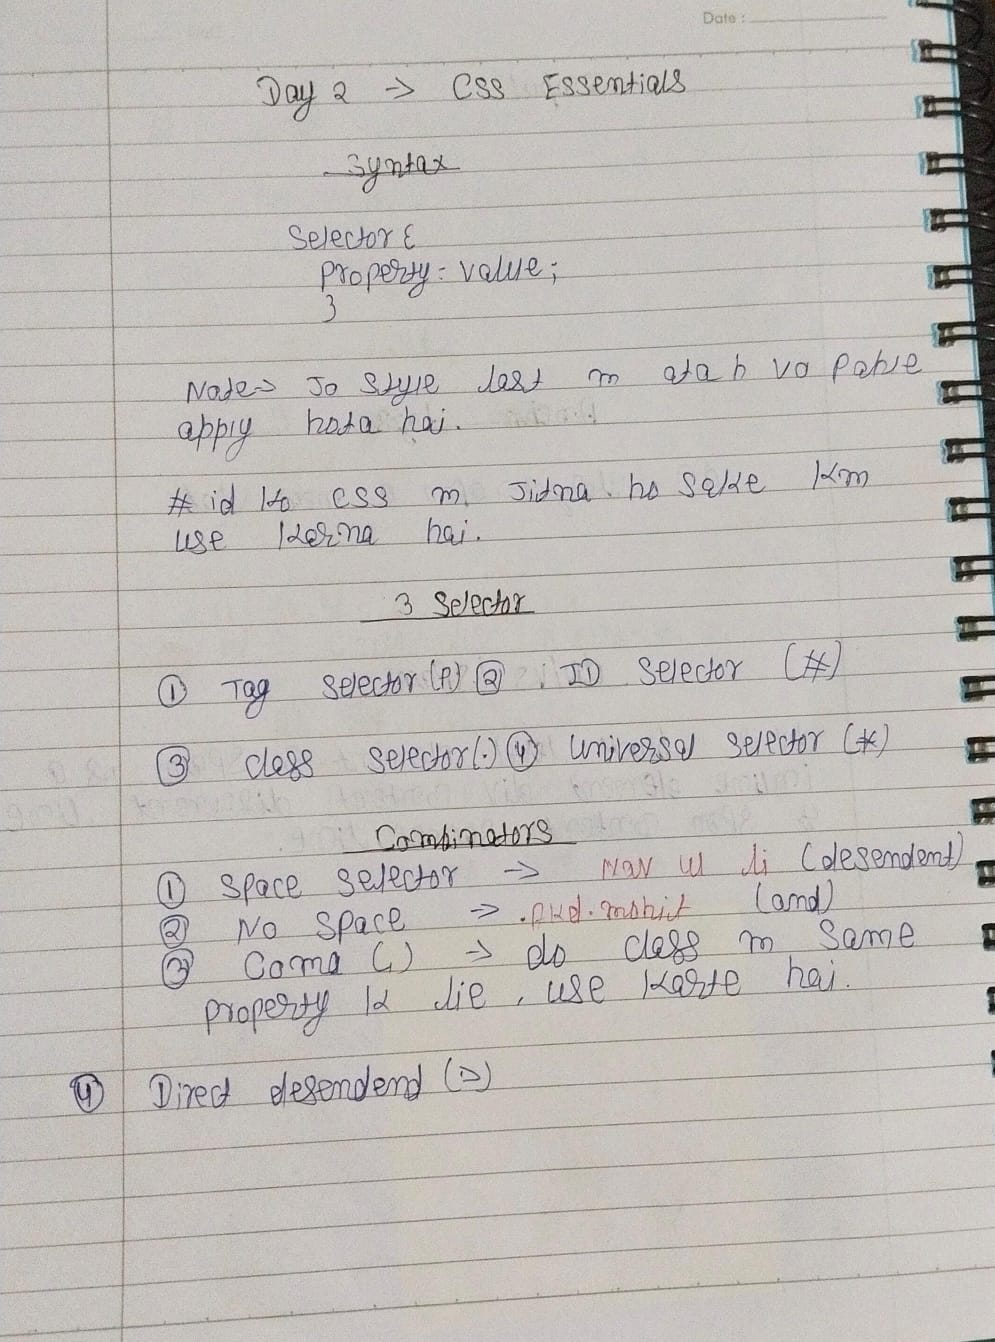 Date :
Day 2 → CSS Essentials
Syntax
Selector {
property = value;
}
Note → Jo Style last m ata h vo Pahle
apply hota hai.
# id ko CSS m Jitna ho Sake km
use karna hai.
3 Selector
① Tag Selector (P) ② . ID Selector (#)
③ class Selector (.) ④ universal Selector (*)
Combinators
① Space Selector → Nav ul li (desendent)
② No Space → .mohit (and)
③ Coma (,) → do class m Same
property k lie , use karte hai.
④ Direct desendend (>)